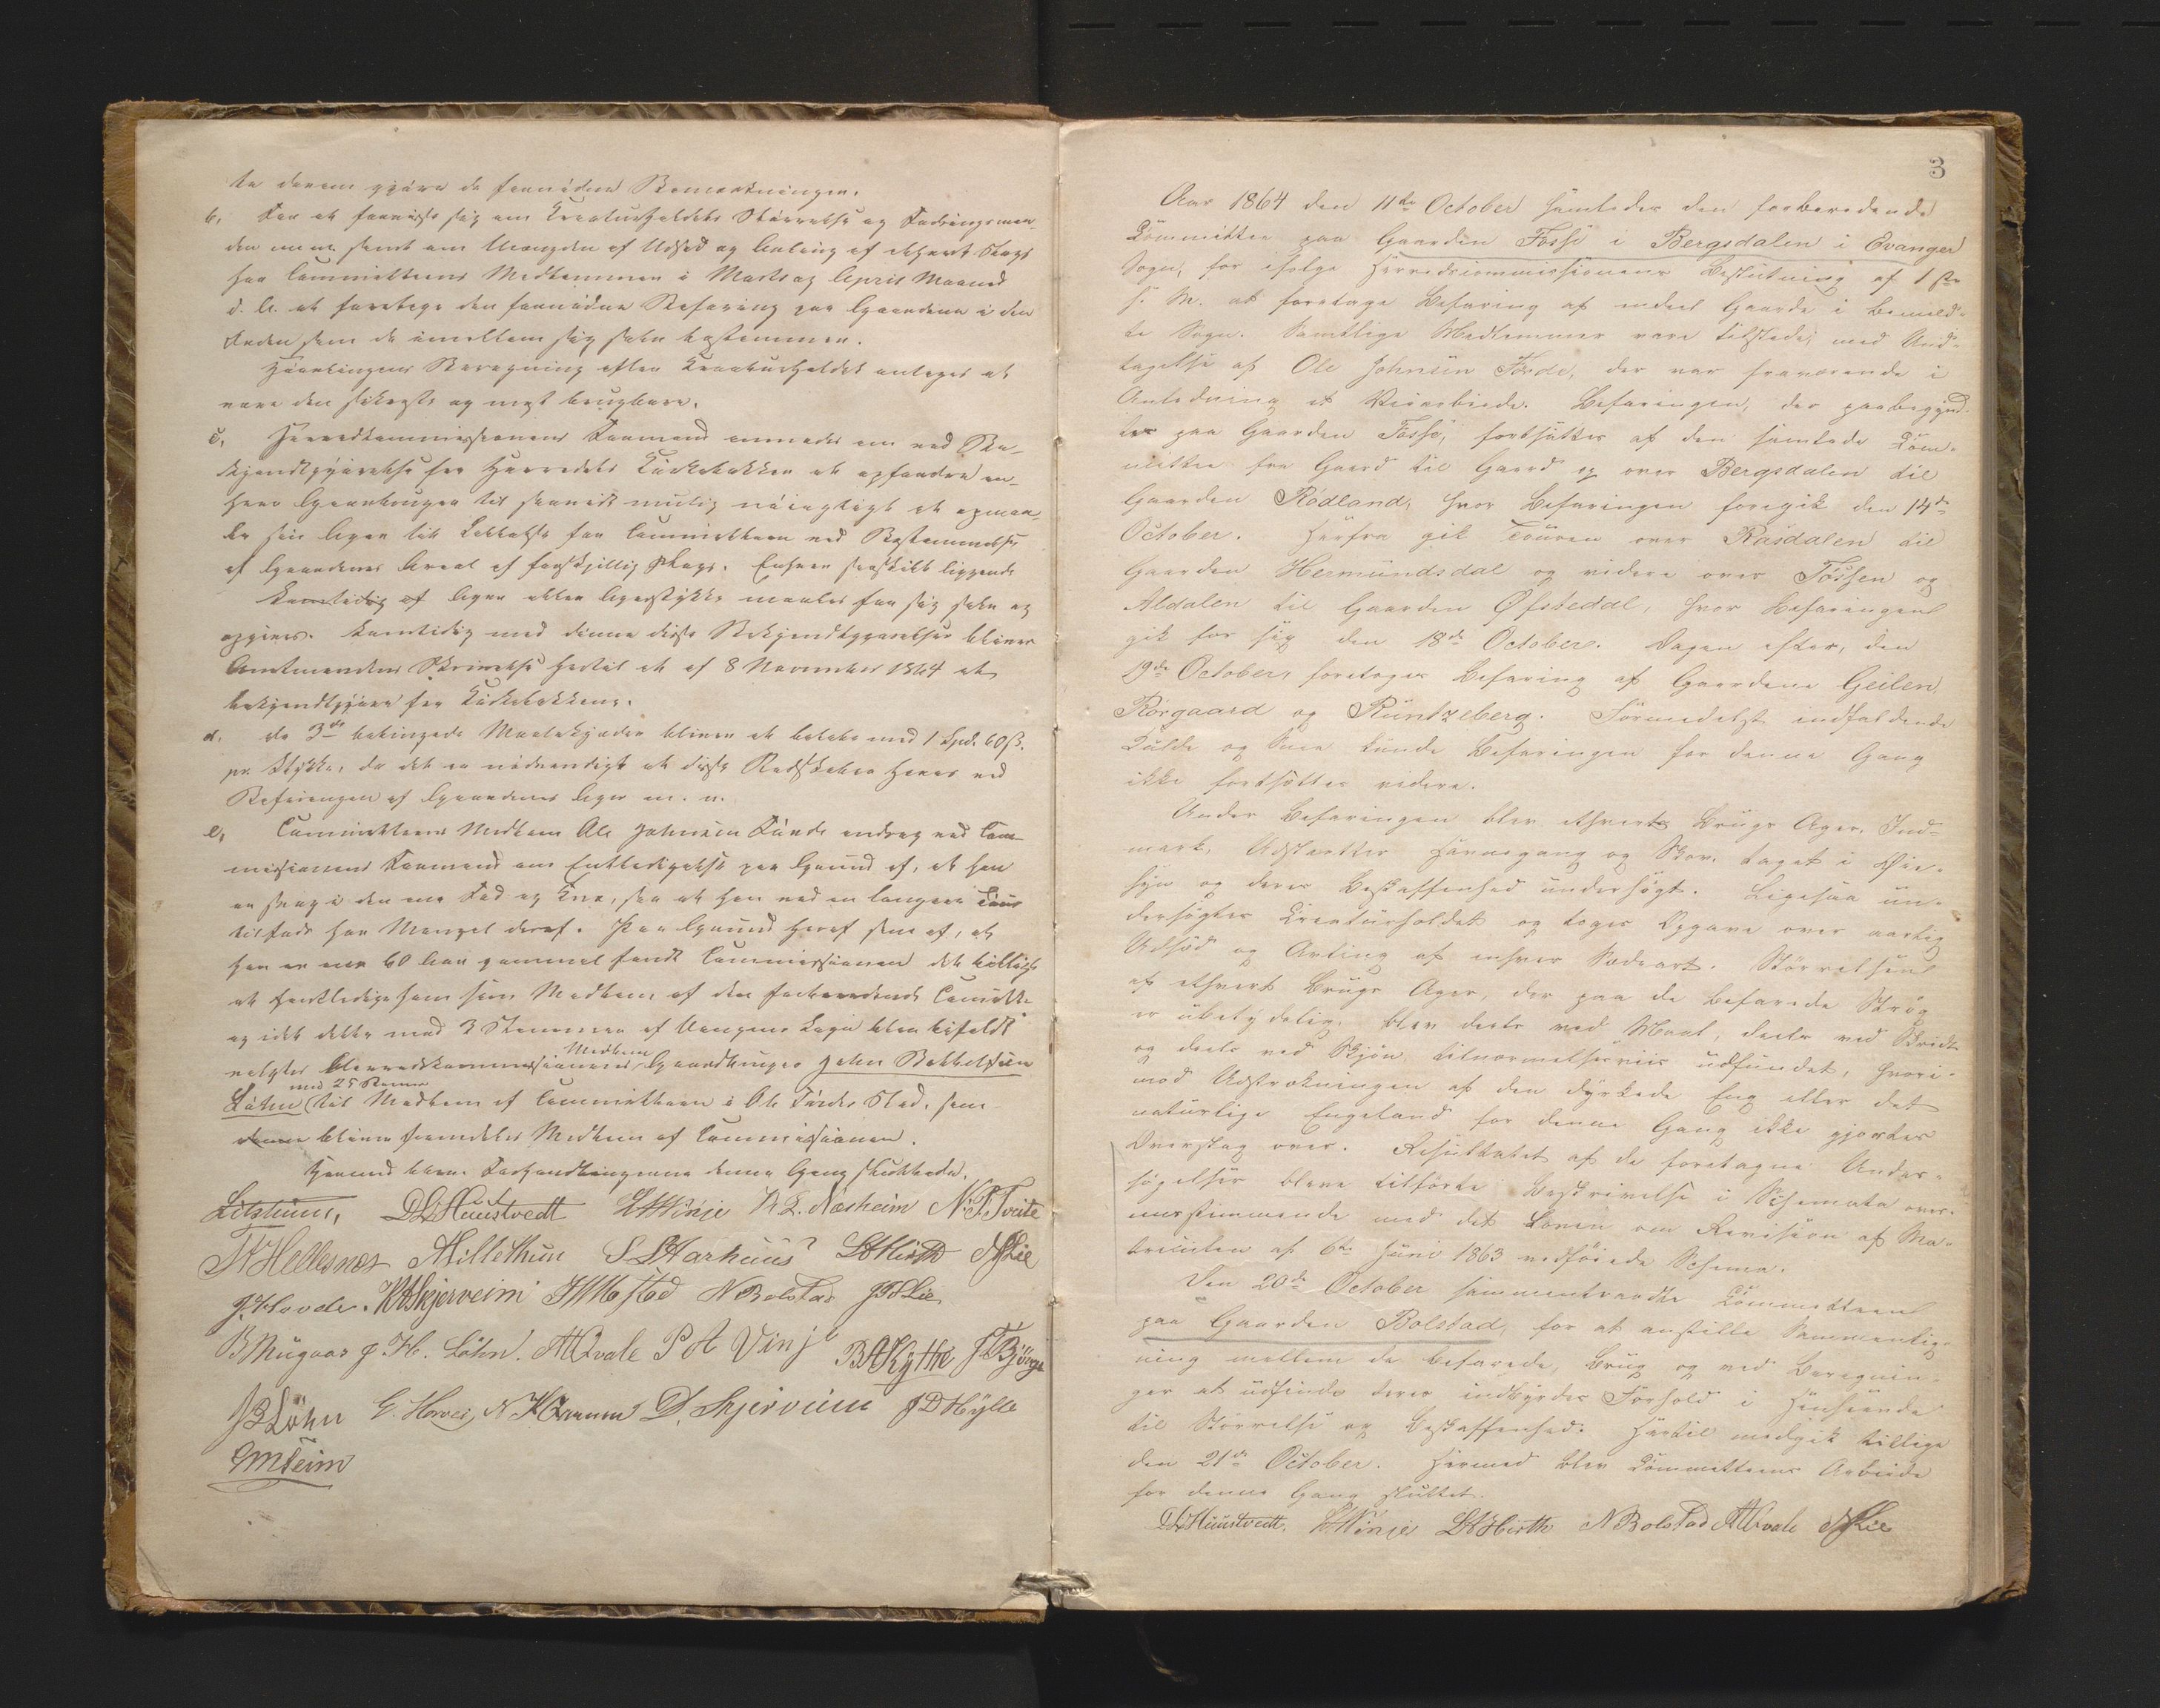 te derom gjøre de fornødne Bemærkninger.
b, For at forvisse sig om Creaturholdets Størrelse og Fodringsmaa-
den m. m. samt om Mængden af Udsæd og Avling af ethvert Slags
har Committeens Medlemmer i Marts og April Maaned
d. A. at foretage den fornødne Befaring paa Gaardene i den
Orden som de imellem sig selv bestemmer.
Høavlingens Beregning efter Kreaturholdet antages at
være den sikreste og mest brugbare.
c, Herredskommissionens Formand anmodes om ved Be-
kjendtgjørelse fra Herredets Kirkebakker at opfordre en-
hver Gaardbruger til saavidt mulig nøiagtigt at opmaa-
le sin Ager til Lettelse for Committeen ved Bestemmelse
af Gaardenes Areal af forskjellig Slags. Enhver særskilt liggende
Ager eller Agerstykke maales for sig selv og
opgives. Samtidig med denne disse Bekjendtgjørelser bliver
Amtmandens Skrivelse hertil at af 8 November 1864 at
bekjendtgjøre fra Kirkebakkene.
d. De 3de betingede Maalekjæder bliver at betale med 1 Spd. 60 ß.
pr. Stykke, da det er nødvendigt at disse Redskaber haves ved
Befaringen af Gaardenes Ager m. v.
e, Committeens Medlem Ole Johnsen Førde androg ved Com-
missionens Formand om Entledigelse paa Grund af, at han
er svag i den ene Fod og Knæ, saa at han ved en længere Tour
tilfods har Mangel deraf. Paa Grund heraf som af, at
han er over 60 Aar gammel fandt Commissionen det billigt
at entledige ham som Medlem af den forberedende Comitte
og idet dette med 3 Stemmer af Vangens Sogn blev bifaldt
valgtes Herredskommissionens Medlem Gaardbruger John Bottolfsen
Løhn med 25 Stemmer til Medlem af Committeen i Ole Førdes Sted, som
bliver fremdeles Medlem af Commissionen.
Hermed bleve Forhandlingerne denne Gang sluttede.
DLHuustvedt Winje N. L. Næsheim N: P. Tveite
Hellesnes AGillethun S LHarhuus LHHirth NLie
J. Hovde. KAskjerveim Mestad N Bolstad JBLie
B Mugaas J. H. Løhn. AAQvale P A Vinje BAKythe JTBjørge
JBLøhn E. Horvei D. skjerveim JDHylle
GMSeim
3
Aar 1864 den 11te October samledes den forberedende
Committee paa Gaarden Fosse i Bergsdalen i Evanger
Sogn, for ifølge Herredscommissionens Beslutning af 1ste
s. M. at foretage Befaring af endeel Gaarde i bemeld-
te Sogn. Samtlige Medlemmer vare tilstede, med Und-
tagelse af Ole Johnsen Førde, der var fraværende i
Anledning et Veiarbeide. Befaringen, der paabegynd-
tes paa Gaarden Fosse, fortsattes af den samlede Com-
mittee fra Gaard til Gaard op over Bergsdalen til
Gaarden Rødland, hvor Befaringen foregik den 14de
October. Herfra gik Touren over Rasdalen til
Gaarden Hermundsdal og videre over Fossen og
Aldalen til Gaarden Øfstedal, hvor Befaringen
gik for sig den 18de October. Dagen efter, den
19de October, foretoges Befaring af Gaardene Geilen,
Rørgaard og Runtzeberg. Formedelst indfaldende
Kulde og Snee kunde Befaringen for denne Gang
ikke fortsættes videre.
Under Befaringen blev ethvert Brugs Ager, Ind-
mark, Udslætter, Havnegang og Skov, taget i Øie-
syn og deres Beskaffenhed undersøgt. Ligesaa un-
dersøgtes Creaturholdet og toges Opgave over aarlig
Udsæd og Avling af enhver Sædeart. Størrelsen
af ethvert Brugs Ager, der paa de befarede Strøg
er ubetydelig, blev deels ved Maal, deels ved Skridt
og deels ved Skjøn tilnærmelsesviis udfundet, hvori-
mod Udstrækningen af den dyrkede Eng eller det
naturlige Engeland for denne Gang ikke gjordes
Overslag over. Resultatet af de foretagne Under-
søgelser bleve tilførte Beskrivelse i Schemata over-
eensstemmende med det Loven om Revision af Ma-
triculen af 6te Juni 1863 vedføiede Schema.
Den 20de October sammentraadte Committeen
paa Gaarden Bolstad, for at anstille Sammenlig-
ning mellem de befarede Brug og ved Beregnin-
ger at udfinde deres indbyrdes Forhold i Henseende
til Størrelse og Beskaffenhed. Hertil medgik tillige
den 21de October. Hermed blev Committeens Arbeide
for denne Gang sluttet.
DLHuustvedt. Winje LHHirth N Bolstad AAQvale NLie